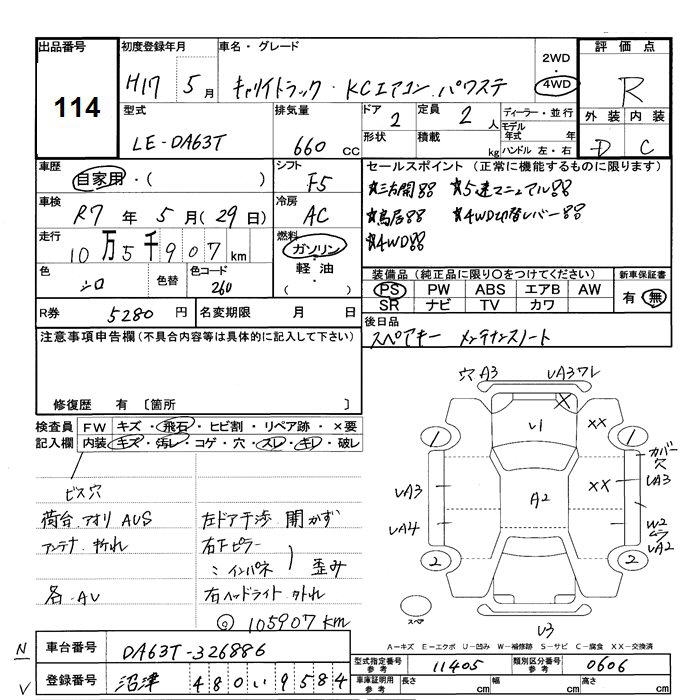 出品番号
114
初度登録年月
H17 5月
車名・グレード
キャリイトラック・KCエアコン.パワステ
2WD
4WD
評価点
R
外装 内装
D C
型式
LE-DA63T
排気量
660 CC
ドア
2
形状
定員
2 人
積載
kg
ディーラー・並行
モデル年式 年
ハンドル 左・右
車歴
自家用・( )
シフト
F5
車検
R7年5月(29日)
冷房
AC
走行
10万5千907km
燃料
ガソリン・軽油・( )
色
シロ
色替
色コード
26U
R券 5280円
名変期限 月 日
セールスポイント(正常に機能するものに限ります)
☆三方開
☆5速マニュアル
☆鳥居
☆4WD切替レバー
☆4WD
装備品(純正品に限り○をつけてください)
PS PW ABS エアB AW
SR ナビ TV カワ
新車保証書
有・無
後日品
スペアキー メンテナンスノート
注意事項申告欄(不具合内容等は具体的に記入して下さい)
修復歴 有〔箇所 〕
検査員記入欄
FW キズ・飛石・ヒビ割・リペア跡・×要
内装 キズ・汚レ・コゲ・穴・スレ・キレ・破レ
ビス穴
荷台.アオリ AUS
アンテナ 折れ
各.AU
左ドア干渉 開かず
右下ピラー
〃インパネ
歪み
右ヘッドライト 外れ
105907km
穴 A3
UA3ワレ
U1
×
××
××
A2
1
1
2
2
UA3
UA4
カバー穴
UA3
W2
ムラ
UA2
U3
スペア
A-キズ E-エクボ U-凹み W-補修跡 S-サビ C-腐食 XX-交換済
N/V
車台番号 DA63T-326886
登録番号 沼津 480い9584
型式指定番号 参考 11405
類別区分番号 参考 0606
車庫証明用 参考 長さ cm 幅 cm 高さ cm